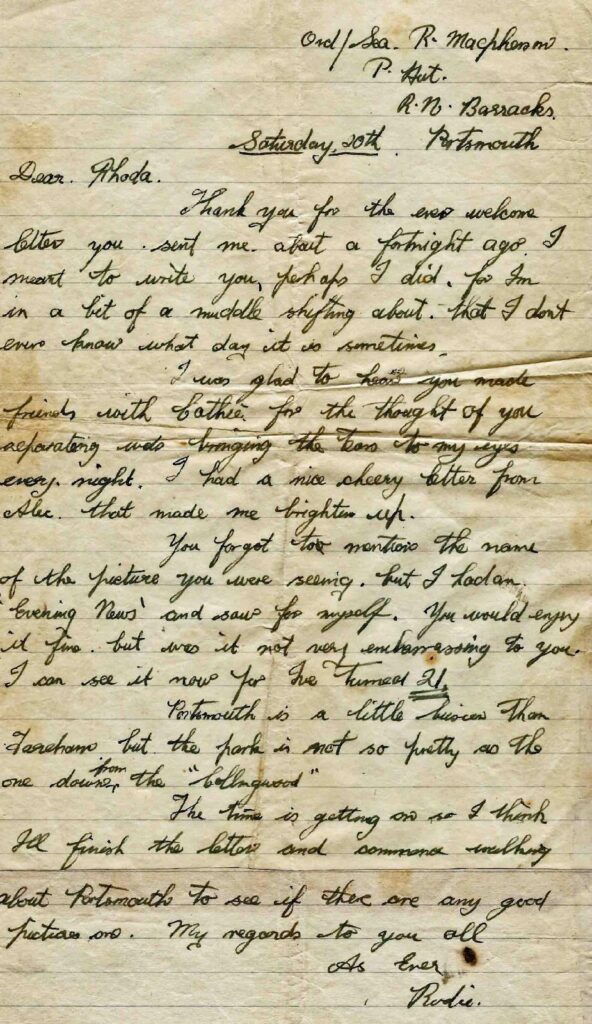 Ord/Sea. R. Macpherson.
P. Hut.
R.N. Barracks.
Saturday, 20th. Portsmouth
Dear. Rhoda.
Thank you for the ever welcome
letter you sent me about a fortnight ago. I
meant to write you, perhaps I did, for Im
in a bit of a muddle shifting about. that I dont
ever know what day it is sometimes.
I was glad to hear you made
friends with Cathie. for the thought of you
separating was bringing the tears to my eyes
every night. I had a nice cheery letter from
Alec. that made me brighten up.
You forgot too mention the name
of the picture you were seeing. but I had an
'Evening News' and saw for myself. You would enjoy
it fine. but was it not very embarrassing to you.
I can see it now for Ive turned 21.
Portsmouth is a little busier than
Fareham but the park is not so pretty as the
one down from the "Collingwood"
The time is getting on so I think
I'll finish the letter and commence walking
about Portsmouth to see if there are any good
pictures on. My regards to you all
As Ever
Rodie.